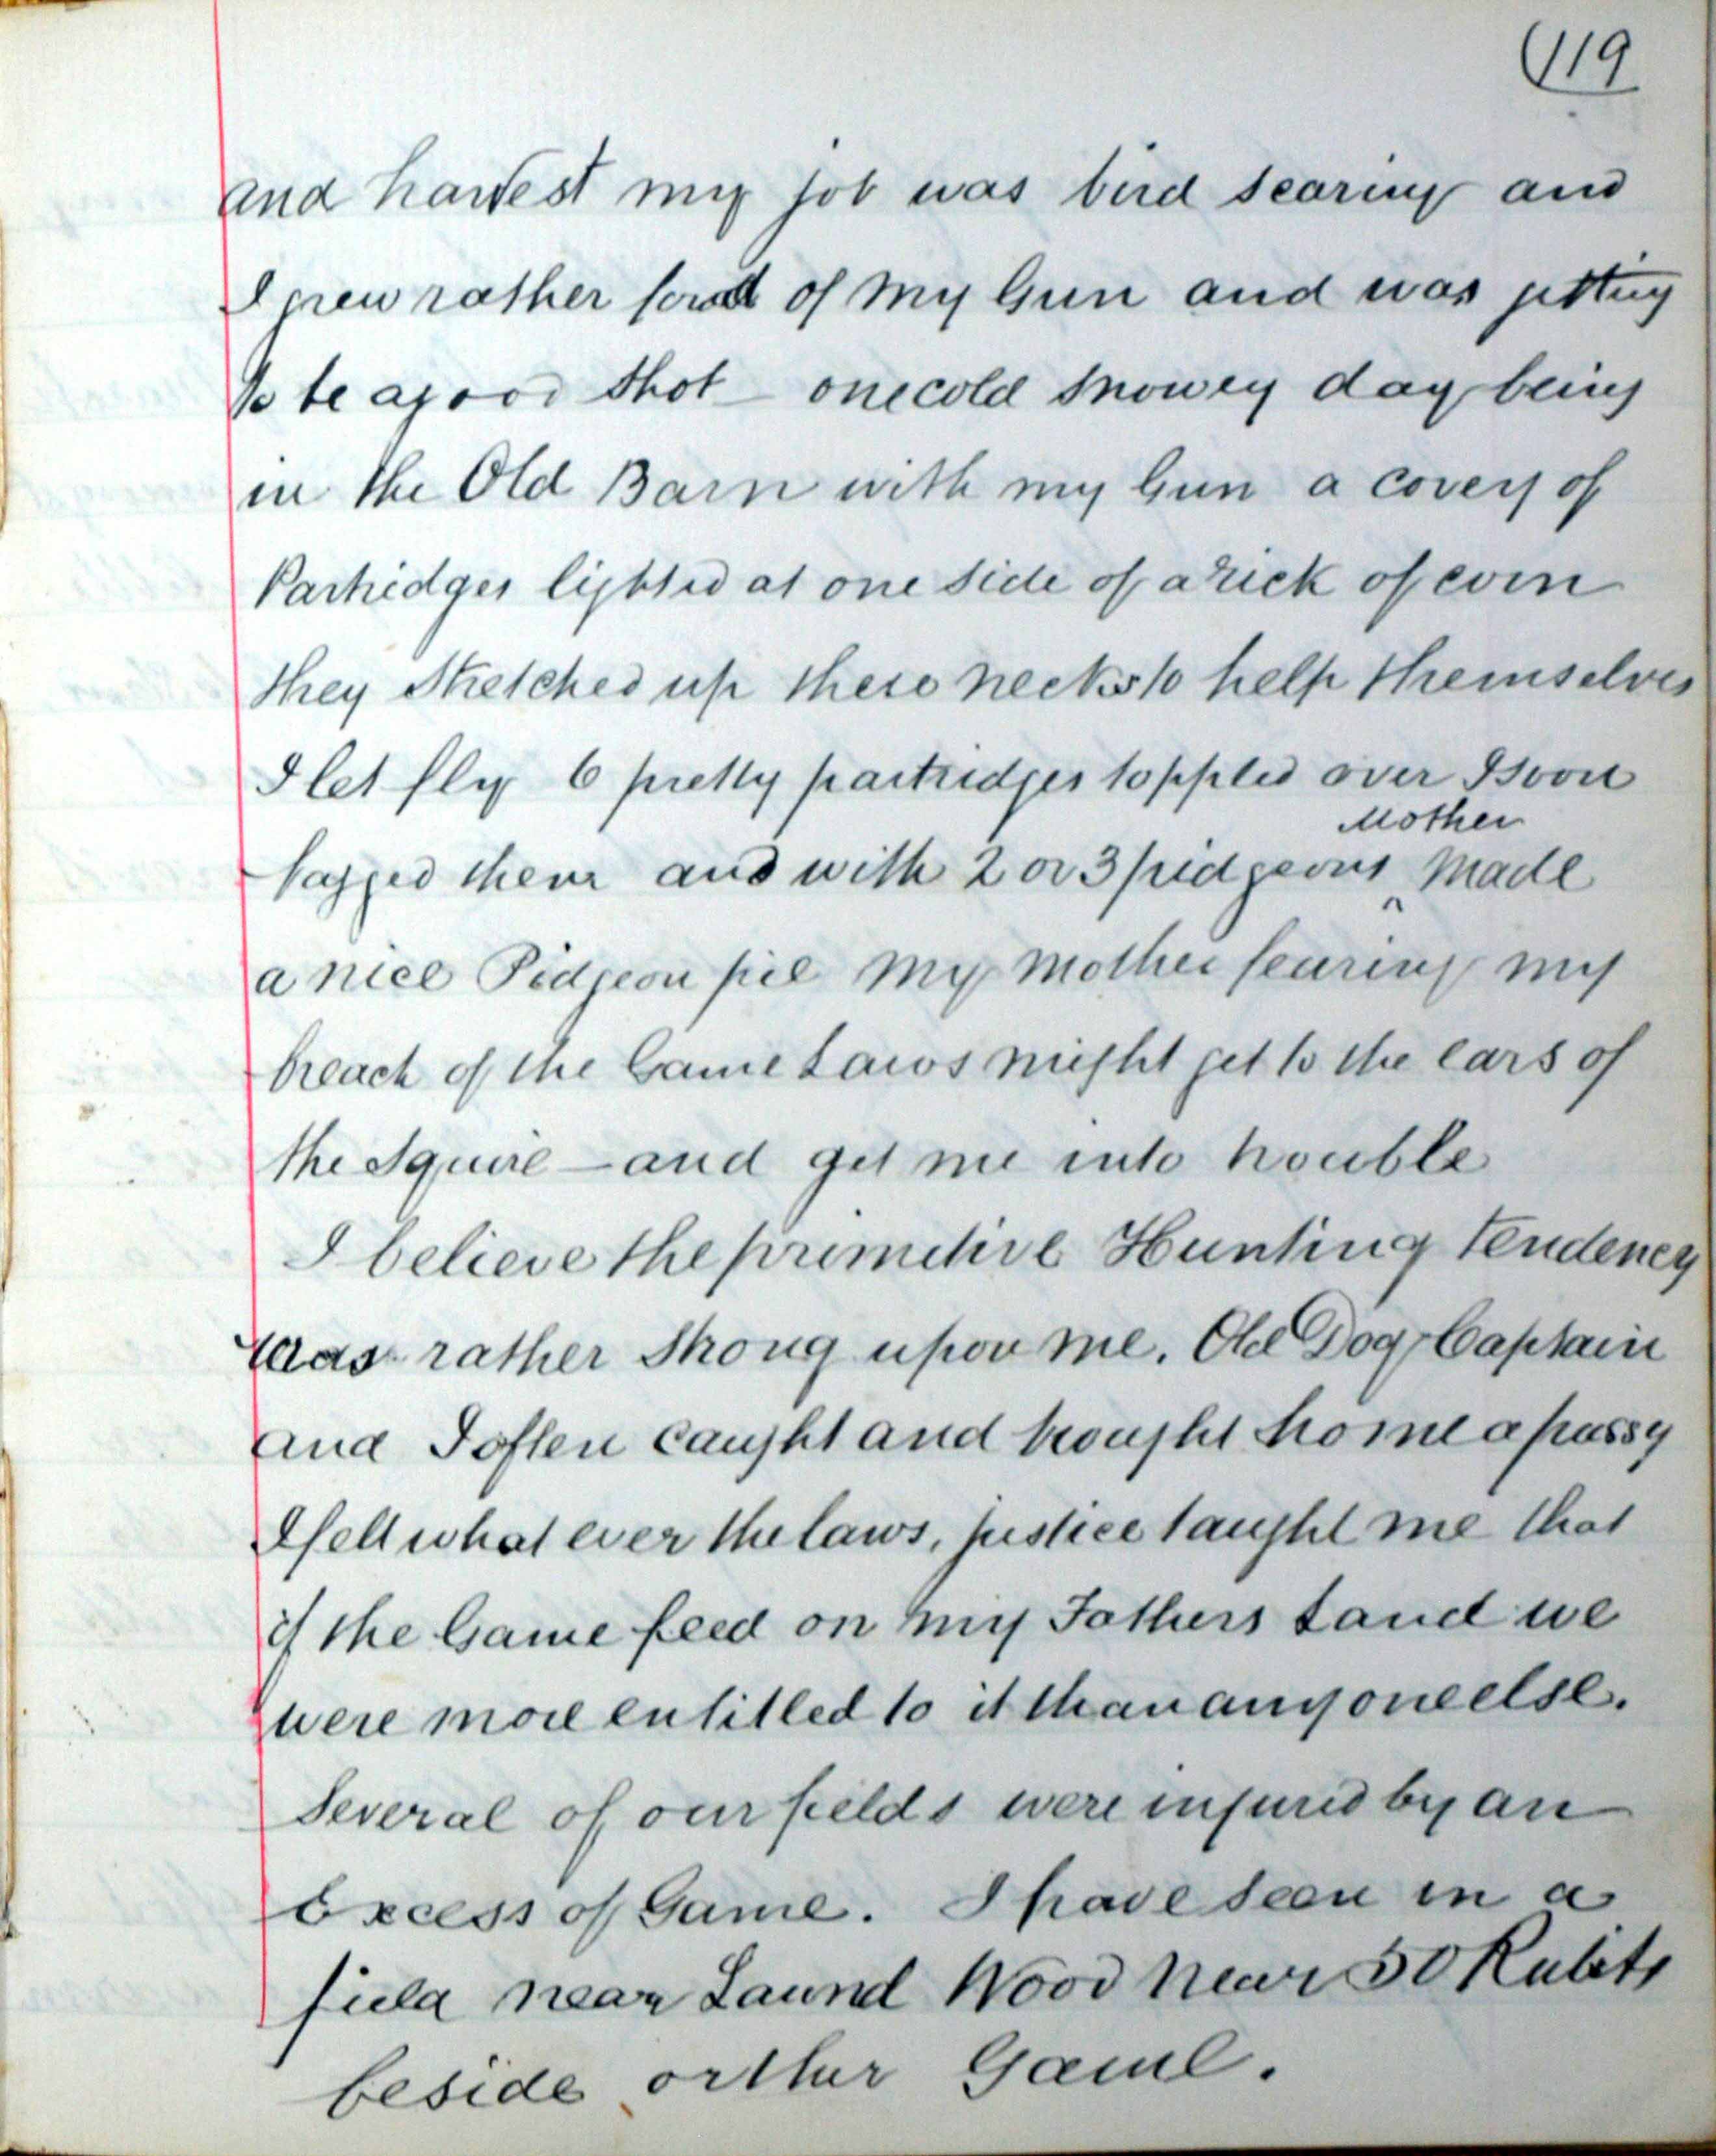 (119
and harvest my job was bird scaring and
I grew rather fond of my Gun and was getting
to be a good shot – one cold snowey day being
in the Old Barn with my Gun a covery of
Partridges lighted at one side of a rick of corn
they stretched up there necks to help themselves
I let fly 6 pretty partridges toppled over I soon
Mother
bagged them and with 2 or 3 pidgeons ^ made
a nice Pidgeon pie my mother fearing my
breach of the Game Laws might get to the ears of
the Squire – and get me into trouble
I believe the primetive Hunting tendency
was rather strong upon me. Old Dog Captain
and I often caught and brought home a pussy
I felt what ever the laws, justice taught me that
if the Game feed on my Fathers Land we
were more entitled to it than anyone else.
Several of our fields were injured by an
Excess of Game. I have seen in a
field near Laund Wood near 50 Rabits
beside orther Game.